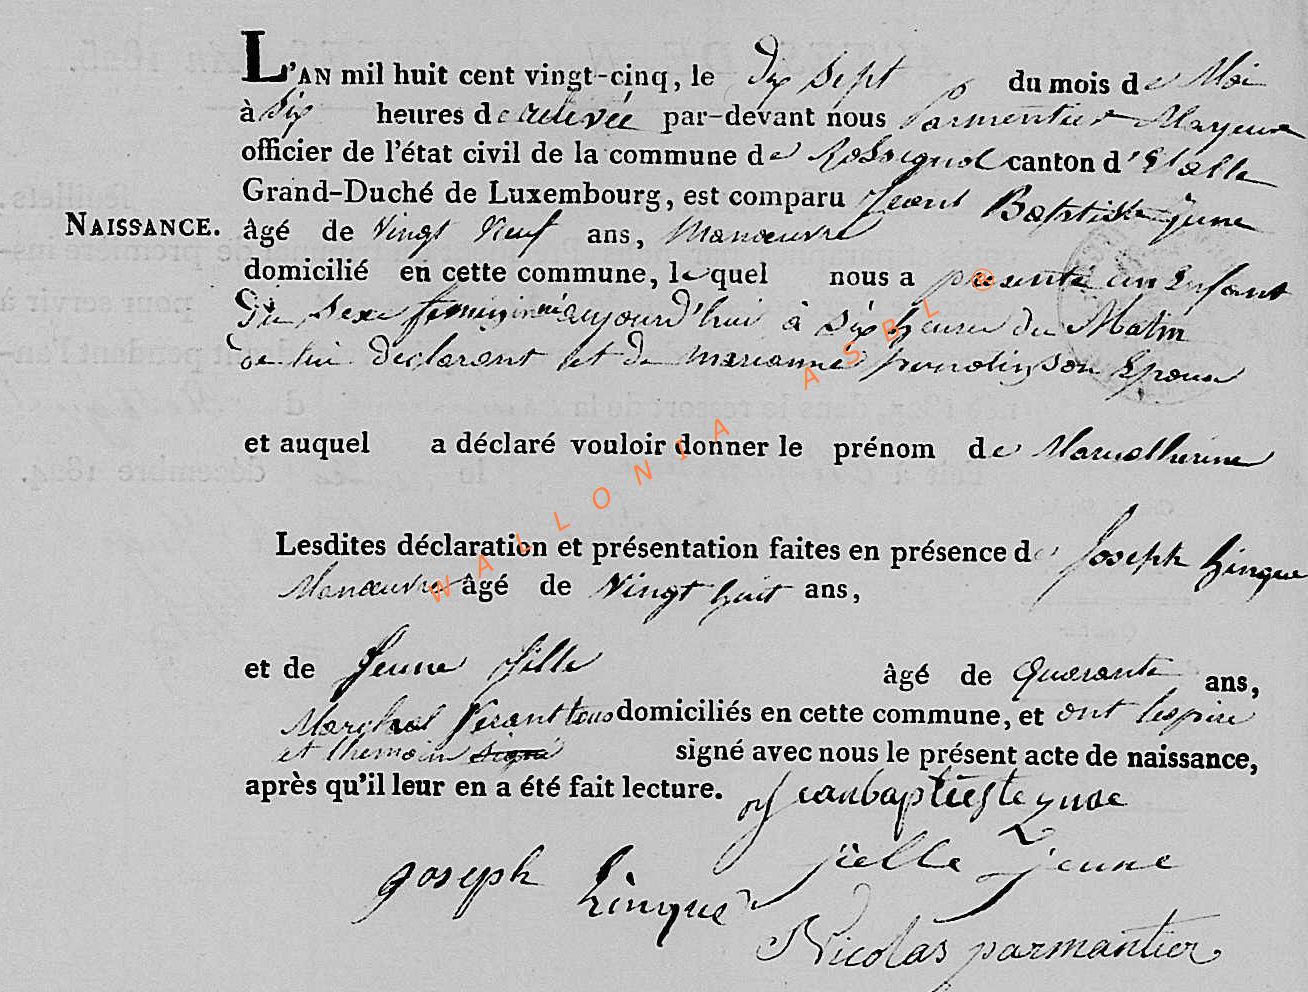 L'AN mil huit cent vingt-cinq, le Dix Sept du mois de Mai
à Six heures de relevée par-devant nous Parmentier Mayeur
officier de l'état civil de la commune de Rossignol canton d'Etalle
Grand-Duché de Luxembourg, est comparu Jean Baptiste
NAISSANCE. âgé de Vingt Neuf ans, Manœuvre
domicilié en cette commune, lequel nous a presenté un Enfant
Du Sexe feminin né aujourd'hui à Six heures du Matin
de lui déclarant et de marianne son Epouse
et auquel a déclaré vouloir donner le prénom de
Lesdites déclaration et présentation faites en présence de Joseph Hinque
Manœuvre âgé de Vingt huit ans,
et de Jeune âgé de Quarante ans,
Marchal tous domiciliés en cette commune, et ont
et signé signé avec nous le présent acte de naissance,
après qu'il leur en a été fait lecture. jeanbaptieste
jeune
joseph hinque
Nicolas parmantier
WALLONIA ASBL ®